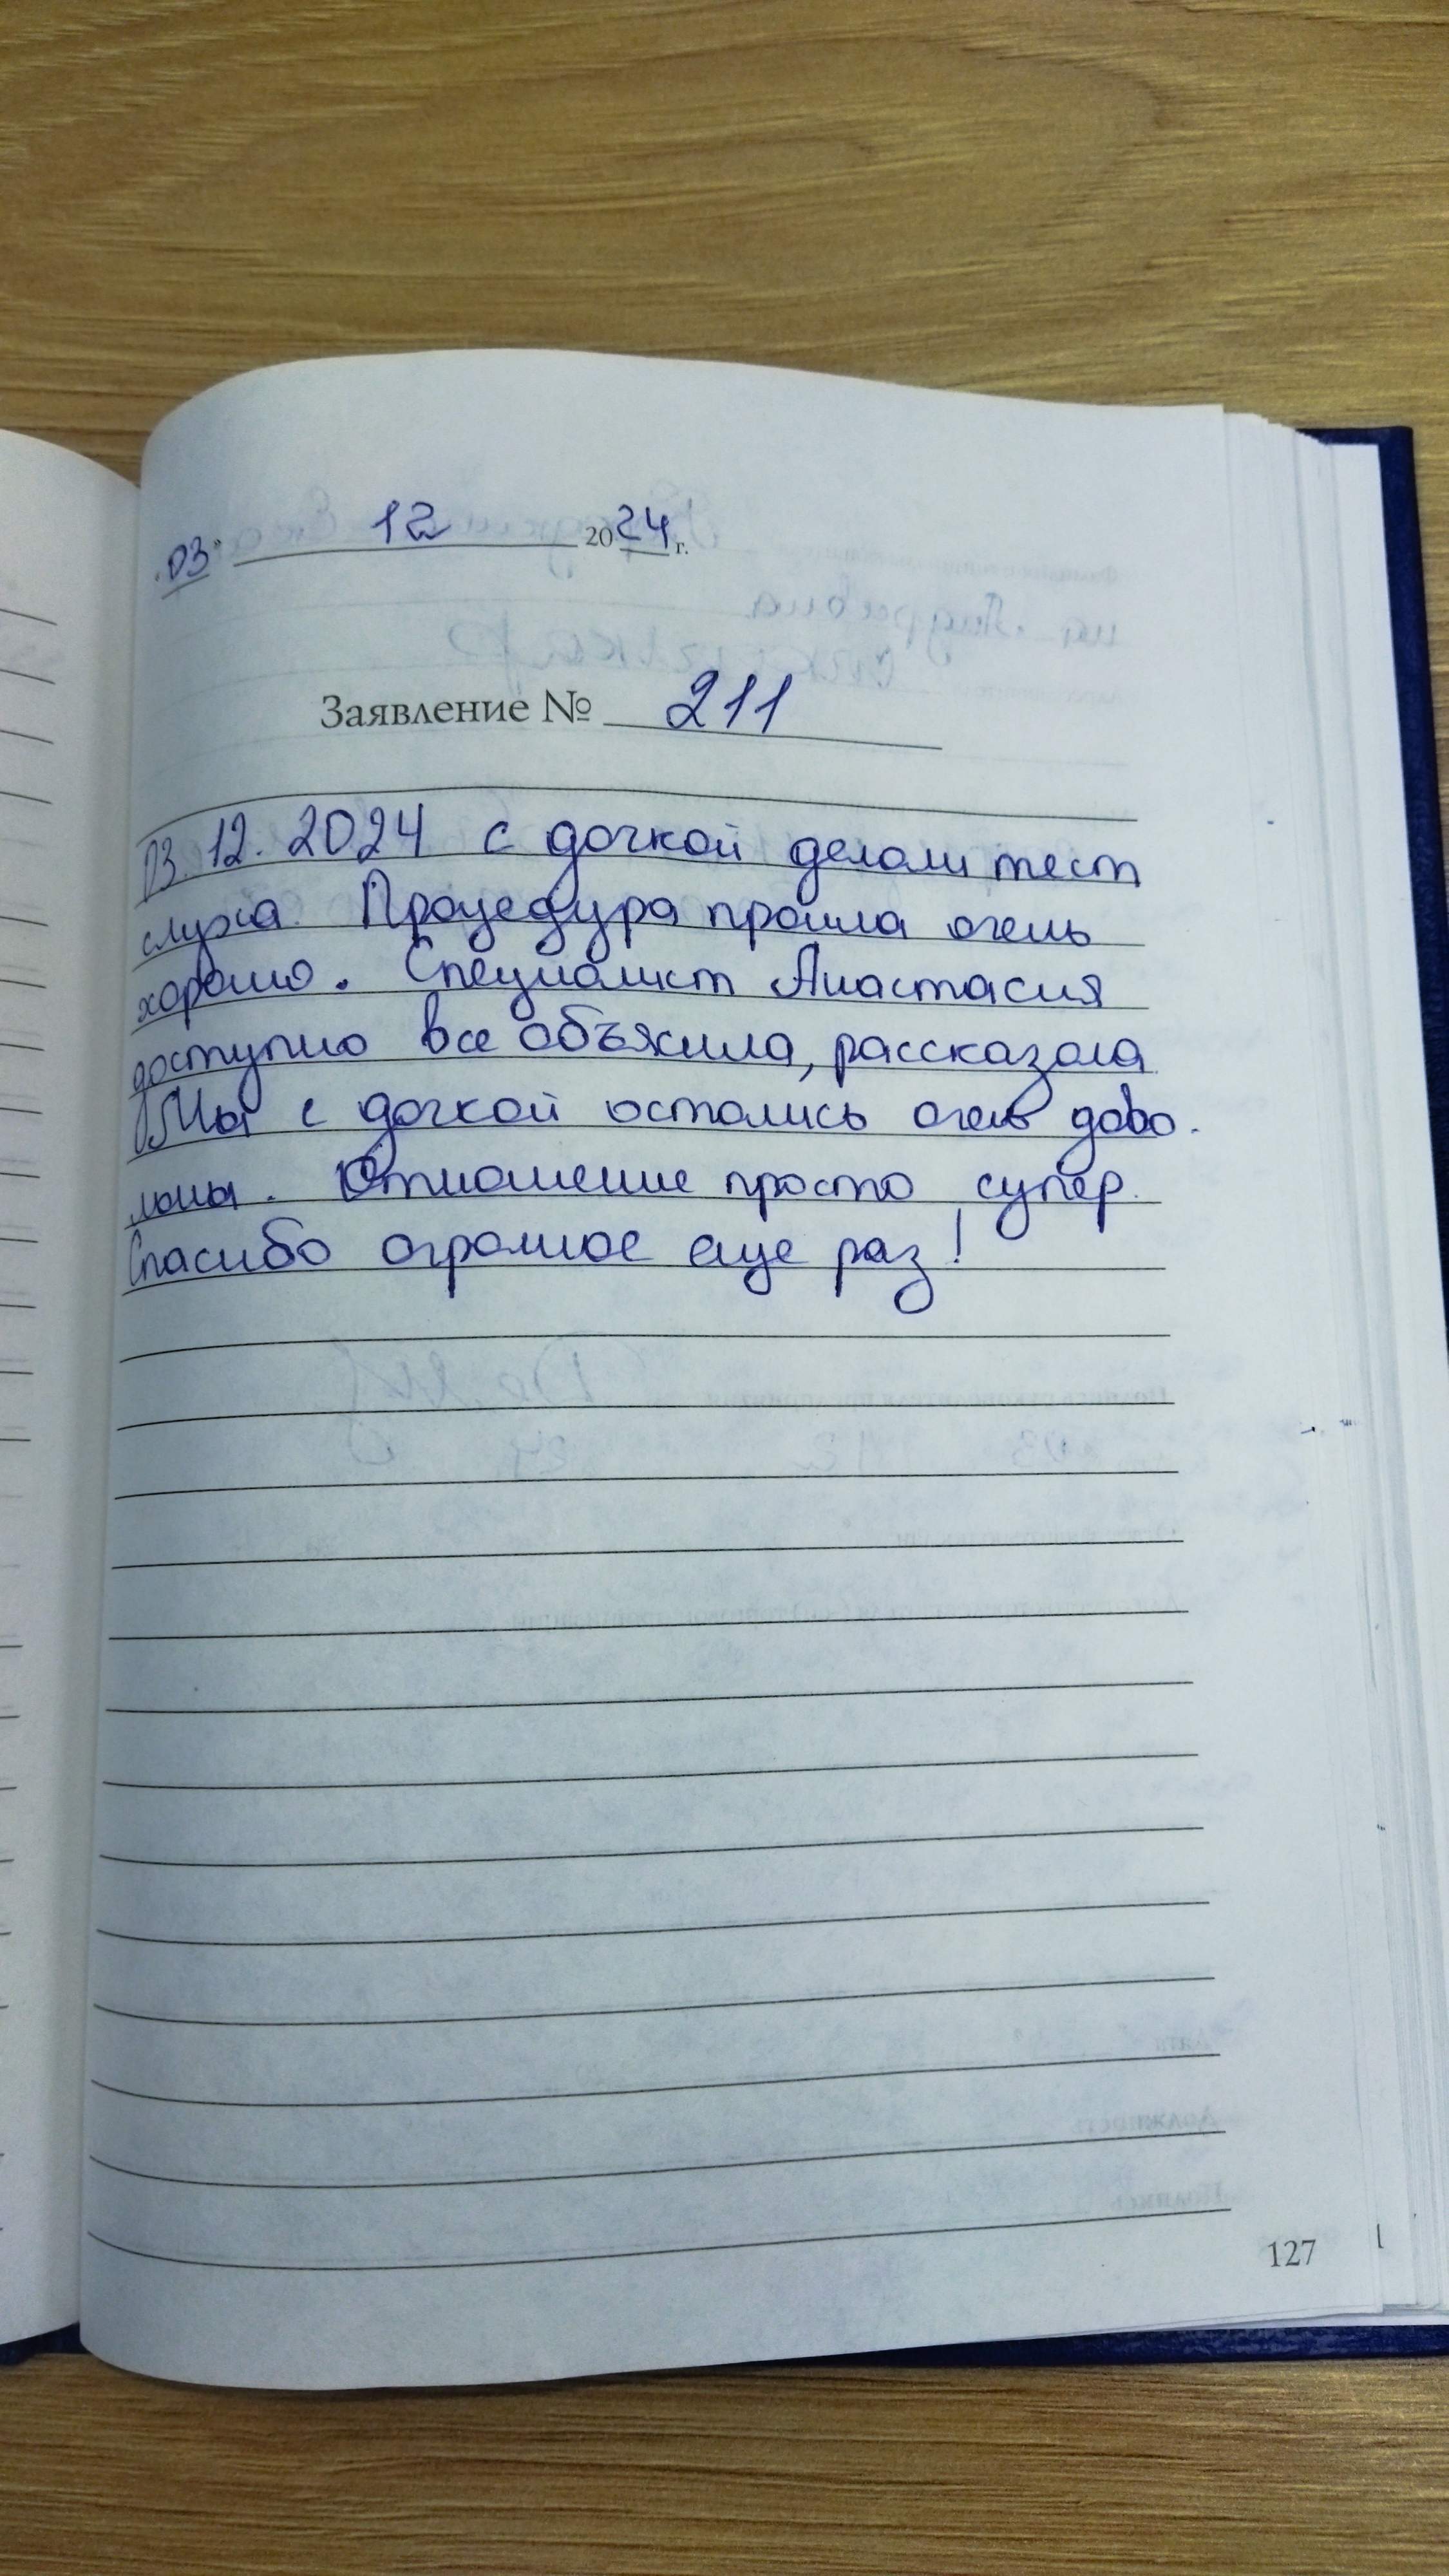 "03" 12 2024 г.
Заявление № 211
03.12.2024 с дочкой делали тест
слуха. Процедура прошла очень
хорошо. Специалист Анастасия
доступно все объяснила, рассказала
Мы с дочкой остались очень дово-
льны. Отношение просто супер.
Спасибо огромное еще раз!
127